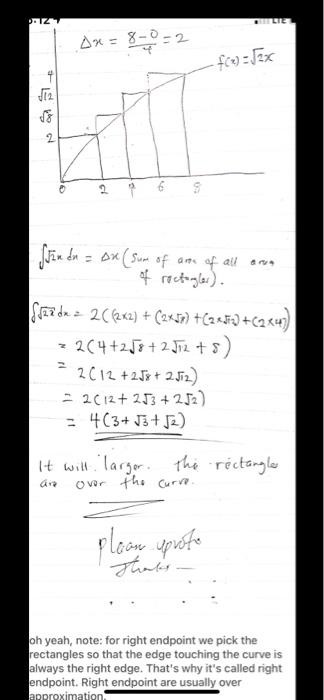 Δx = 8-0/4 = 2
f(x) = √2x
4
√12
√8
2
0 2 4 6 8
∫√2x dx = Δx (Sum of area of all area
of rectangles).
∫√2x dx = 2((2x2) + (2x√8) + (2x√12) + (2x4))
= 2(4+2√8+2√12+8)
= 2(12+2√8+2√12)
= 2(12+2√3+2√2)
= 4(3+√3+√2)
It will larger. the rectangles
are over the curve.
please upvote
Thanks
oh yeah, note: for right endpoint we pick the
rectangles so that the edge touching the curve is
always the right edge. That's why it's called right
endpoint. Right endpoint are usually over
approximation.